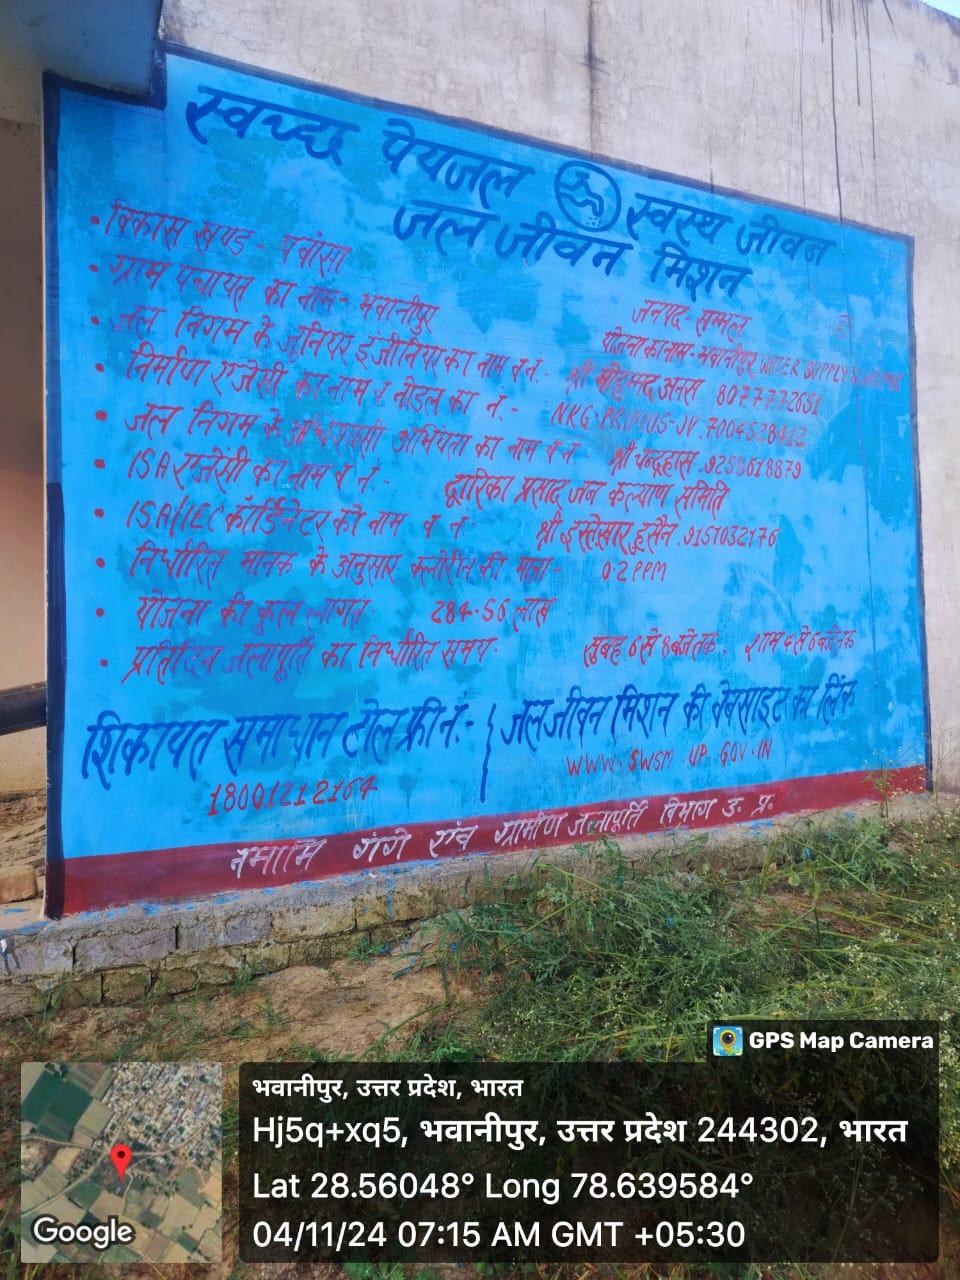 स्वच्छ पेयजल स्वस्थ जीवन
जल जीवन मिशन
• विकास खण्ड - पवांसा
जनपद - सम्भल
• ग्राम पंचायत का नाम - भवानीपुर
योजना का नाम - भवानीपुर WATER SUPPLY SCHEME
• जल निगम के जूनियर इंजीनियर का नाम व नं. - श्री मोहम्मद अनस 8077772681
• निर्माण एजेंसी का नाम व नोडल का नं. - NKG-PRIMUS-JV. 7004528412
• जल निगम के अधिशासी अभियंता का नाम व नं श्री चन्द्रहास. 9258618879
• ISA एजेंसी का नाम व नं: - द्वारिका प्रसाद जन कल्याण समिति
• ISA/IEC कॉर्डिनेटर का नाम व नं:- श्री इस्तेखार हुसैन. 9151032176
• निर्धारित मानक के अनुसार क्लोरीन की मात्रा - 0.2 PPM
• योजना की कुल लागत 284.56 लाख
• प्रतिदिन जलापूर्ति का निर्धारित समय- सुबह 6 से 8 बजे तक. शाम 4 से 6 बजे तक
शिकायत समाधान टोल फ्री नं:-
18001212164
जल जीवन मिशन की वेबसाइट का लिंक
WWW.SWSM.UP.GOV.IN
नमामि गंगे एंव ग्रामीण जलापूर्ति विभाग उ. प्र.
GPS Map Camera
भवानीपुर, उत्तर प्रदेश, भारत
Hj5q+xq5, भवानीपुर, उत्तर प्रदेश 244302, भारत
Lat 28.56048° Long 78.639584°
04/11/24 07:15 AM GMT +05:30
Google